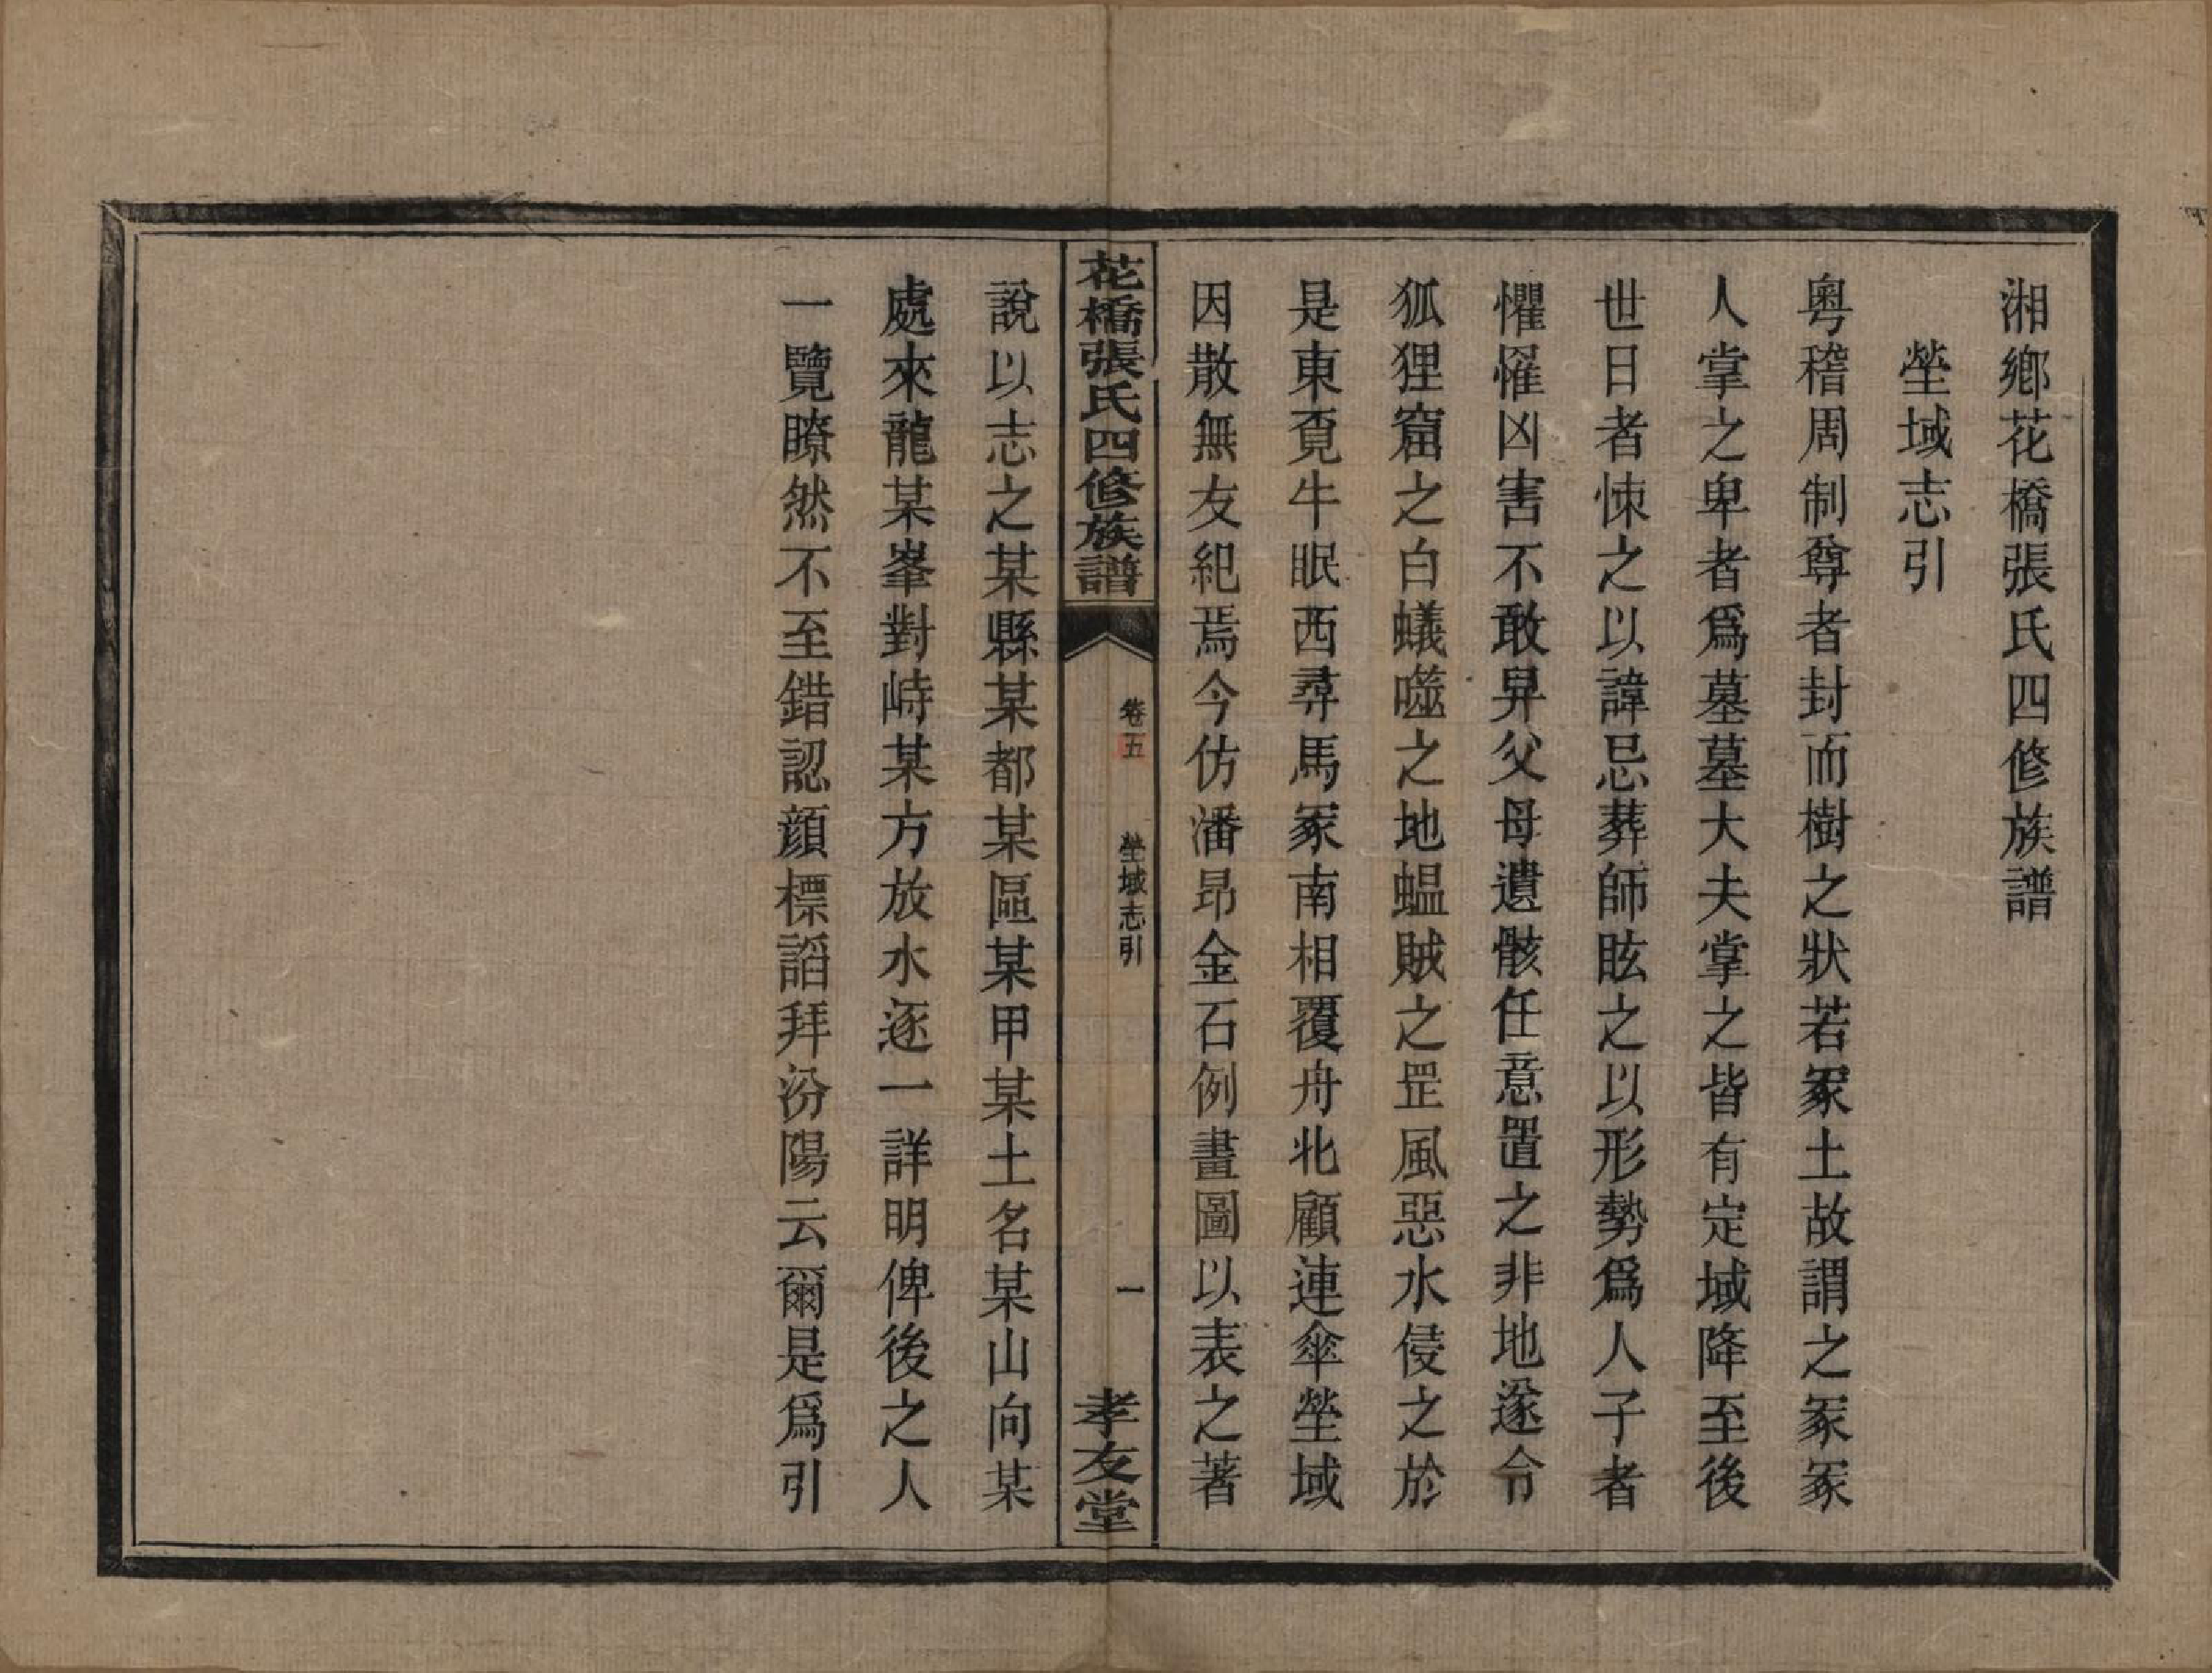 湘鄉花橋張氏四修族譜
塋域志引
粵稽周制尊者封而樹之狀若冡土故謂之冡冡
人掌之卑者爲墓墓大夫掌之皆有定域降至後
世日者悚之以諱忌葬師眩之以形勢爲人子者
懼罹凶害不敢舁父母遺骸任意置之非地遂令
狐狸窟之白蟻噬之地蝹賊之罡風惡水侵之於
是東覔牛眠西尋馬冡南相覆舟北顧連傘塋域
因散無友紀焉今仿潘昂金石例畫圖以表之著
花橋張氏四修族譜
卷五
塋域志引
一
孝友堂
說以志之某縣某都某區某甲某土名某山向某
處來龍某峯對峙某方放水逐一詳明俾後之人
一覽瞭然不至錯認顔標謟拜汾陽云爾是爲引